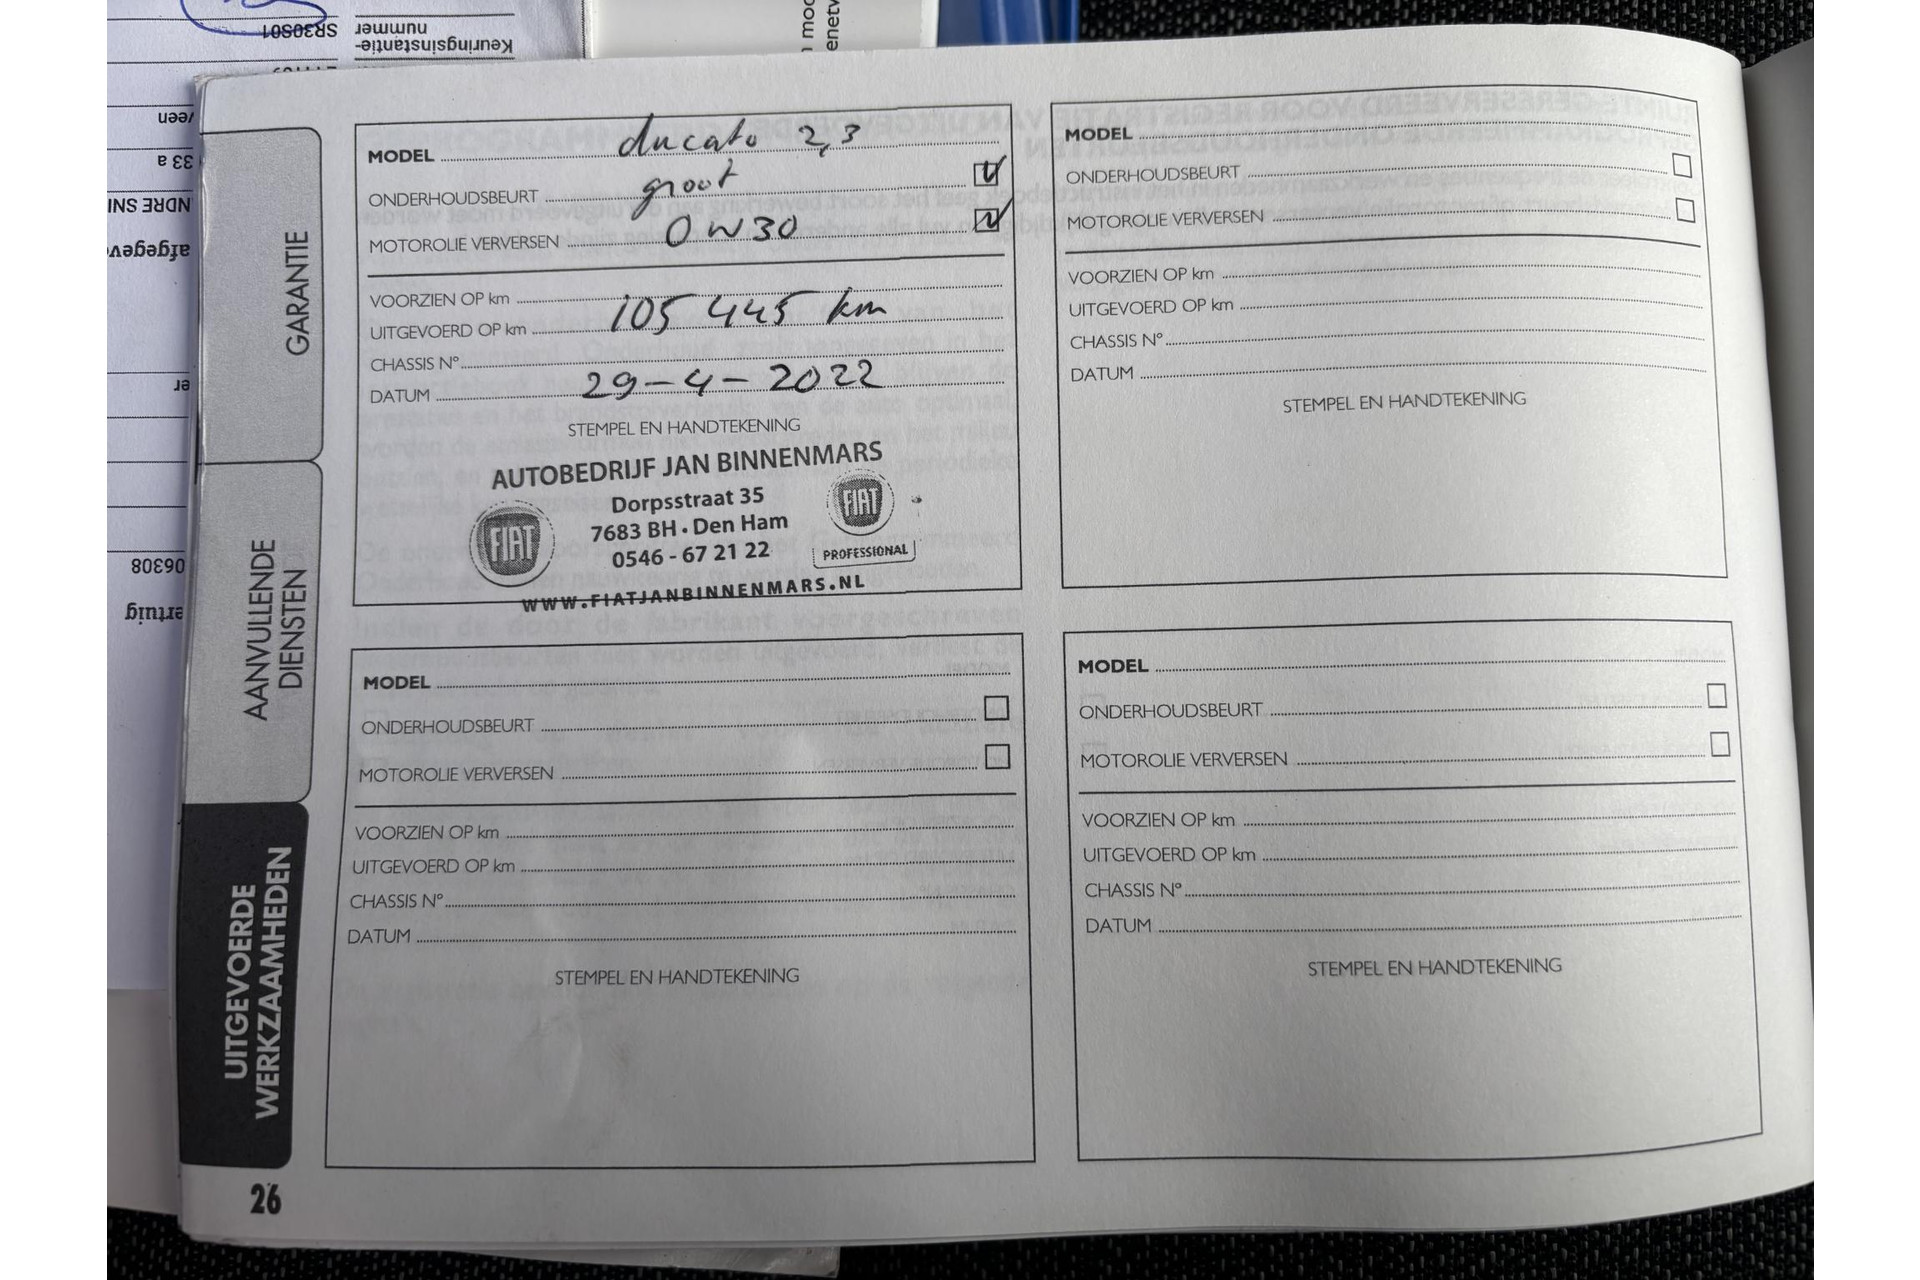 SR30S01
Keuringsinstantie-
nummer
veen
33 a
NDRE SNI
afgegev
er
06308
ertuig
n moo
enetw
GARANTIE
AANVULLENDE
DIENSTEN
UITGEVOERDE
WERKZAAMHEDEN
26
MODEL ducato 2,3
ONDERHOUDSBEURT groot
MOTOROLIE VERVERSEN 0W30
VOORZIEN OP km
UITGEVOERD OP km 105 445 km
CHASSIS Nº
DATUM 29-4-2022
STEMPEL EN HANDTEKENING
AUTOBEDRIJF JAN BINNENMARS
Dorpsstraat 35
7683 BH • Den Ham
0546 - 67 21 22
FIAT
FIAT
PROFESSIONAL
WWW.FIATJANBINNENMARS.NL
MODEL
ONDERHOUDSBEURT
MOTOROLIE VERVERSEN
VOORZIEN OP km
UITGEVOERD OP km
CHASSIS Nº
DATUM
STEMPEL EN HANDTEKENING
MODEL
ONDERHOUDSBEURT
MOTOROLIE VERVERSEN
VOORZIEN OP km
UITGEVOERD OP km
CHASSIS Nº
DATUM
STEMPEL EN HANDTEKENING
MODEL
ONDERHOUDSBEURT
MOTOROLIE VERVERSEN
VOORZIEN OP km
UITGEVOERD OP km
CHASSIS Nº
DATUM
STEMPEL EN HANDTEKENING